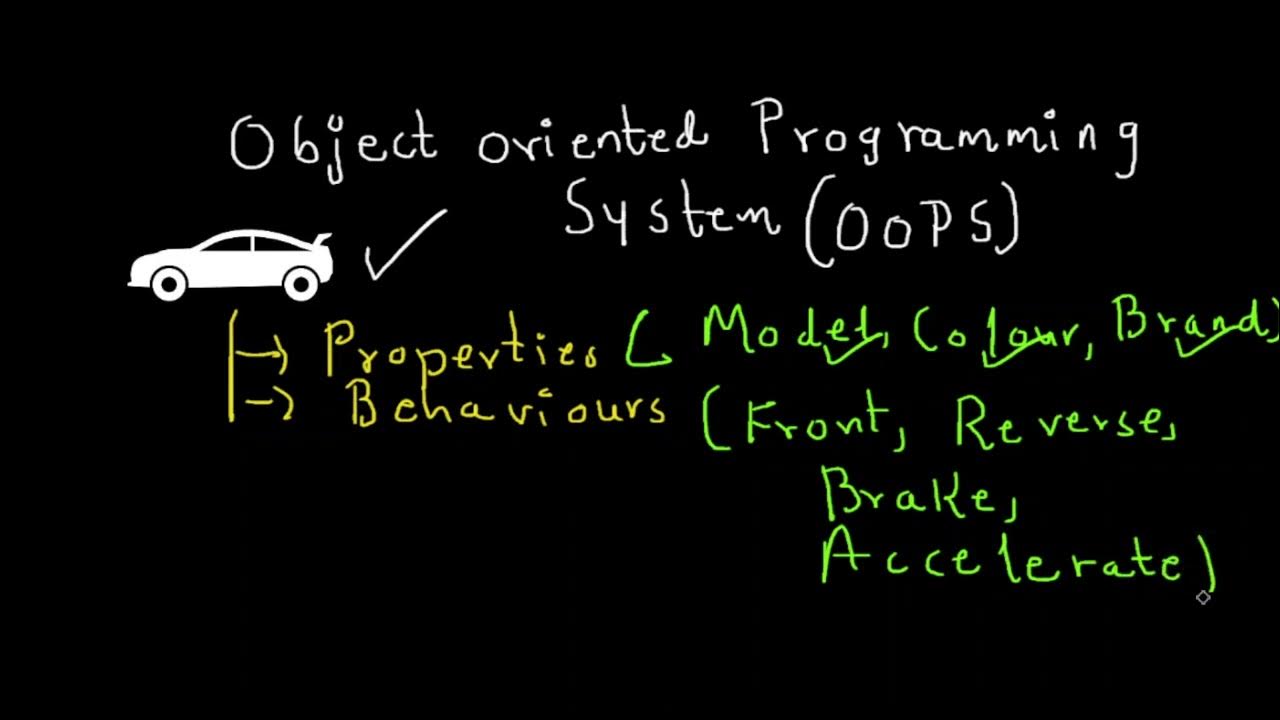 Object oriented Programming
System (OOPS)
Properties ( Model, Colour, Brand)
Behaviours (Front, Reverse,
Brake,
Accelerate)